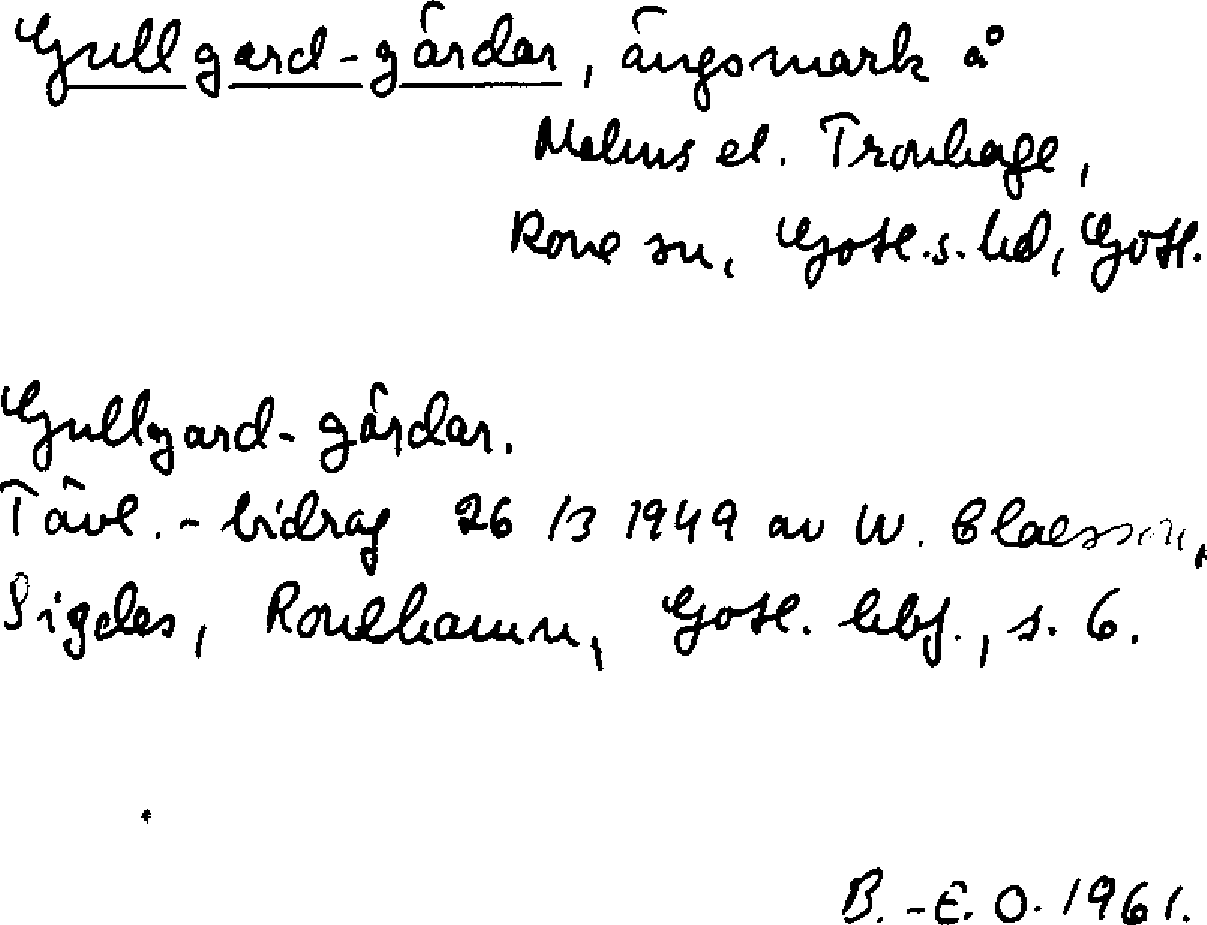 Gullgard-gärdar, ängsmark å
Malms el. Tronhage,
Rone sn, Gotl.s. hd, Gotl.
Gullgard-gärdar.
Tävl.-bidrag 26/3 1949 av W. Claesson,
Sigdes, Ronehamn, Gotl. hbf., s. 6.
B.-E. O. 1961.